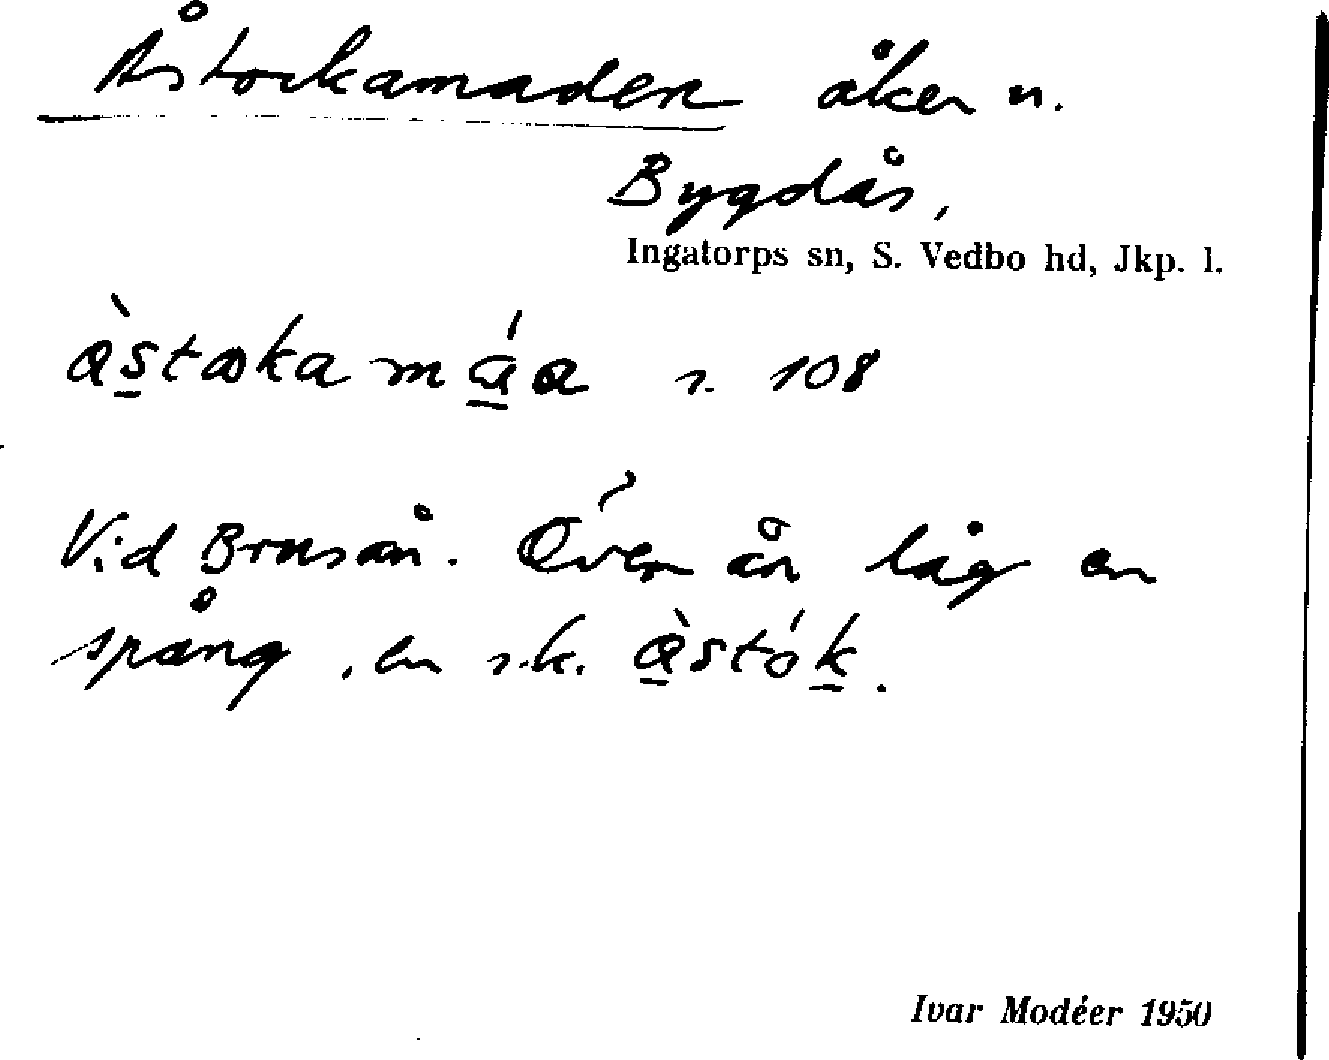 Åstockamaden åker n.
Bygdås,
Ingatorps sn, S. Vedbo hd, Jkp. l.
s. 108
Vid Brusån. Över ån låg en
spång, en s.k. àstók.
Ivar Modéer 1950